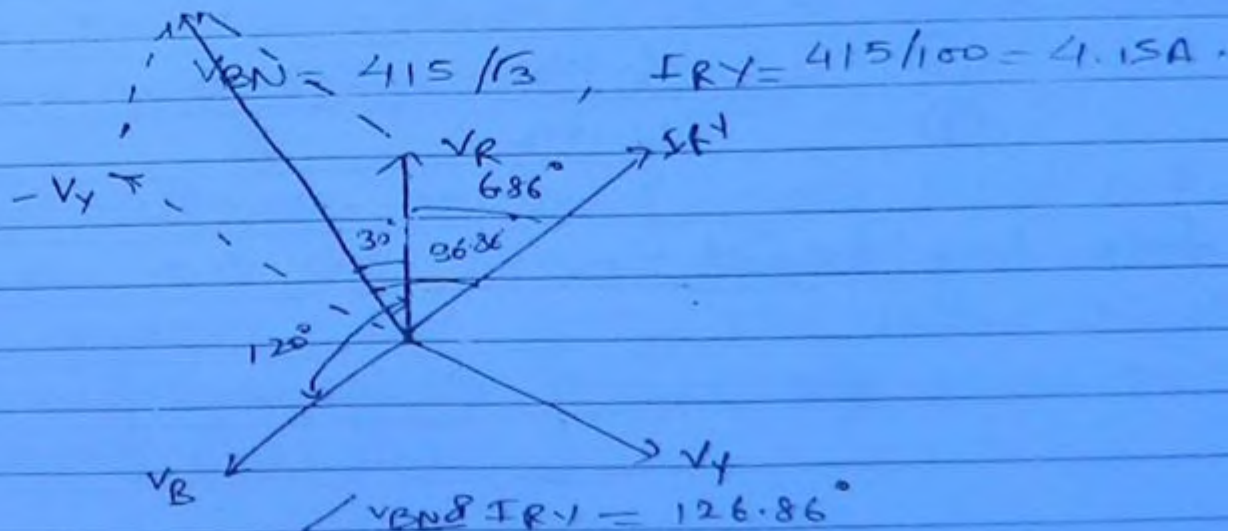 VBN = 415/√3 , IRY = 415/100 = 4.15A.
VR
IRY
6.86°
- VY
30°
96.86
120°
VB
VY
∠VBN & IRY = 126.86°